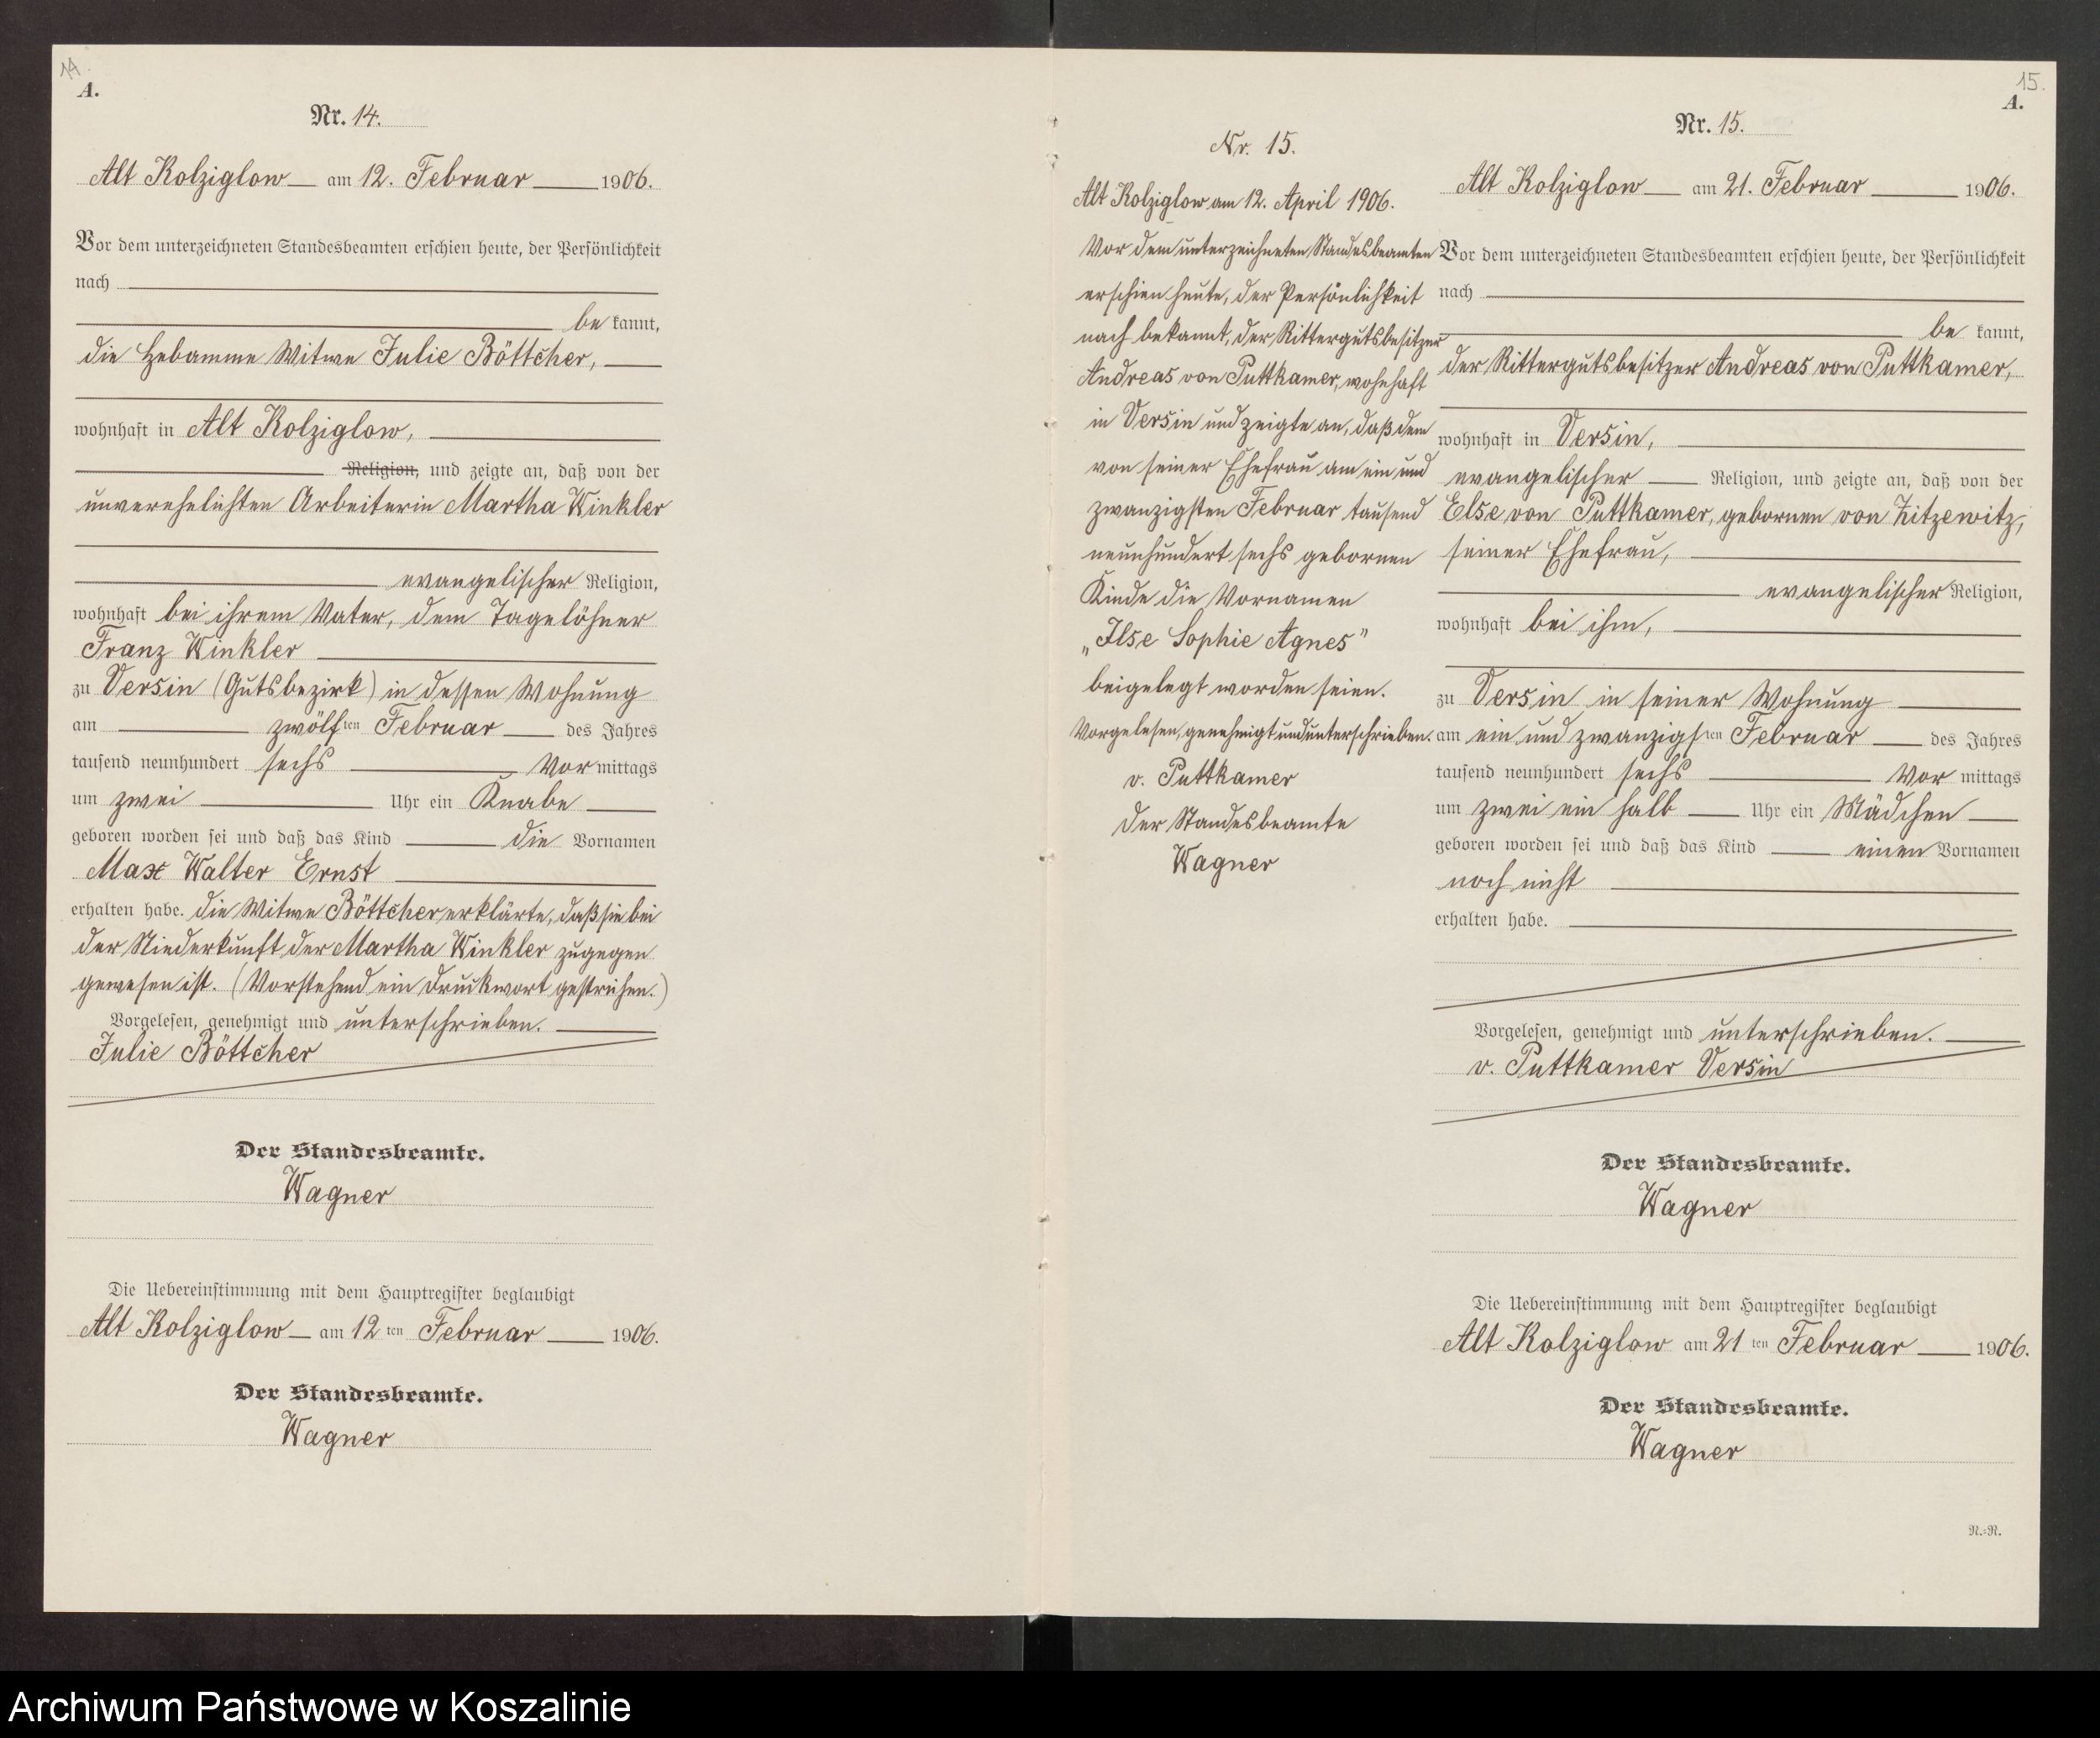 14.
A.
Nr. 14.
Alt Kolziglow am 12. Februar 1906.
Vor dem unterzeichneten Standesbeamten erschien heute, der Persönlichkeit
nach
be kannt,
die Hebamme Witwe Julie Böttcher,
wohnhaft in Alt Kolziglow,
Religion, und zeigte an, daß von der
unverehelichten Arbeiterin Martha Winkler
evangelischer Religion,
wohnhaft bei ihrem Vater, dem Tagelöhner
Franz Winkler
zu Versin (Gutsbezirk) in dessen Wohnung
am zwölf ten Februar des Jahres
tausend neunhundert sechs Vor mittags
um zwei Uhr ein Knabe
geboren worden sei und daß das Kind die Vornamen
Max Walter Ernst
erhalten habe. Die Witwe Böttcher erklärte, daß sie bei
der Niederkunft der Martha Winkler zugegen
gewesen ist. (Vorstehend ein Druckwort gestrichen.)
Vorgelesen, genehmigt und unterschrieben.
Julie Böttcher
Der Standesbeamte.
Wagner
Die Uebereinstimmung mit dem Hauptregister beglaubigt
Alt Kolziglow am 12 ten Februar 1906.
Der Standesbeamte.
Wagner
Nr. 15.
Alt Kolziglow am 12. April 1906.
Vor dem unterzeichneten Standesbeamten
erschien heute, der Persönlichkeit
nach bekannt, der Rittergutsbesitzer
Andreas von Puttkamer, wohnhaft
in Versin und zeigte an, daß dem
von seiner Ehefrau am ein und
zwanzigsten Februar tausend
neunhundert sechs gebornen
Kinde die Vornamen
„Ilse Sophie Agnes"
beigelegt worden seien.
Vorgelesen, genehmigt und unterschrieben.
v. Puttkamer
Der Standesbeamte
Wagner
15.
A.
Nr. 15.
Alt Kolziglow am 21. Februar 1906.
Vor dem unterzeichneten Standesbeamten erschien heute, der Persönlichkeit
nach
be kannt,
der Rittergutsbesitzer Andreas von Puttkamer,
wohnhaft in Versin,
evangelischer Religion, und zeigte an, daß von der
Else von Puttkamer, gebornen von Zitzewitz,
seiner Ehefrau,
evangelischer Religion,
wohnhaft bei ihm,
zu Versin in seiner Wohnung
am ein und zwanzigs ten Februar des Jahres
tausend neunhundert sechs Vor mittags
um zwei ein halb Uhr ein Mädchen
geboren worden sei und daß das Kind einen Vornamen
noch nicht
erhalten habe.
Vorgelesen, genehmigt und unterschrieben.
v. Puttkamer Versin
Der Standesbeamte.
Wagner
Die Uebereinstimmung mit dem Hauptregister beglaubigt
Alt Kolziglow am 21 ten Februar 1906.
Der Standesbeamte.
Wagner
R.=R.
Archiwum Państwowe w Koszalinie